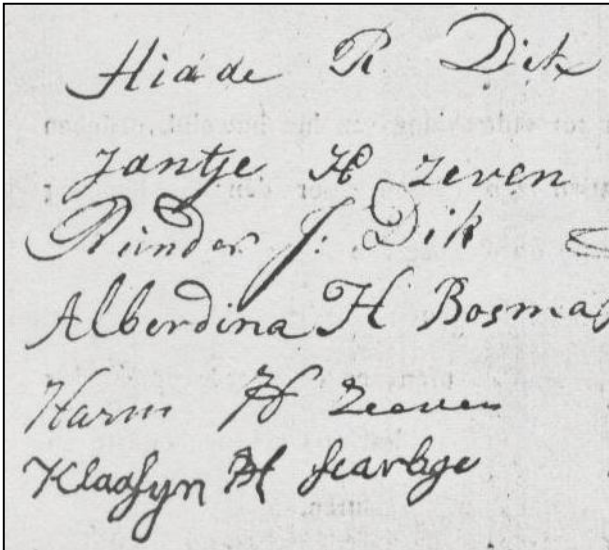 Hiade R Dik
Jantje H zeven
Riender J: Dik
Alberdina H Bosma
Harm H Zeeven
Klaasyn H